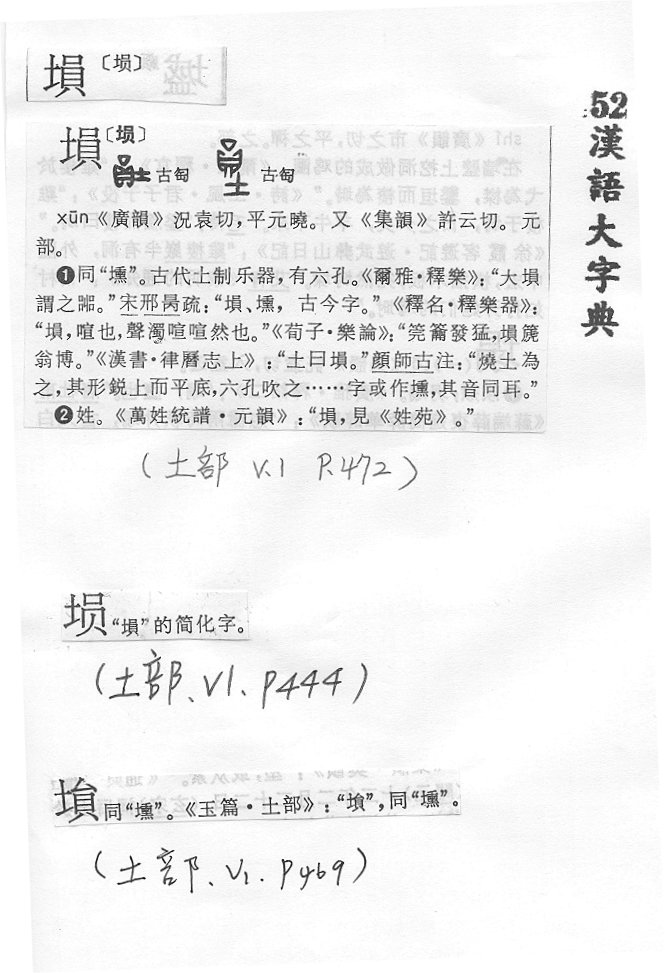 52
漢語大字典
塤〔埙〕
塤〔埙〕
古匋 古匋
xūn《廣韻》况袁切，平元曉。又《集韻》許云切。元
部。
❶同“壎”。古代土制乐器，有六孔。《爾雅·釋樂》：“大塤
謂之嘂。”宋邢昺疏：“塤、壎，古今字。”《釋名·釋樂器》：
“塤，喧也，聲濁喧喧然也。”《荀子·樂論》：“筦籥發猛，塤篪
翁博。”《漢書·律曆志上》：“土曰塤。”顔師古注：“燒土為
之，其形鋭上而平底，六孔吹之……字或作壎，其音同耳。”
❷姓。《萬姓統譜·元韻》：“塤，見《姓苑》。”
（土部 V.1 P.472）
埙“塤”的简化字。
（土部、V1、P444）
同“壎”。《玉篇·土部》：“”，同“壎”。
（土部、V1. P469）